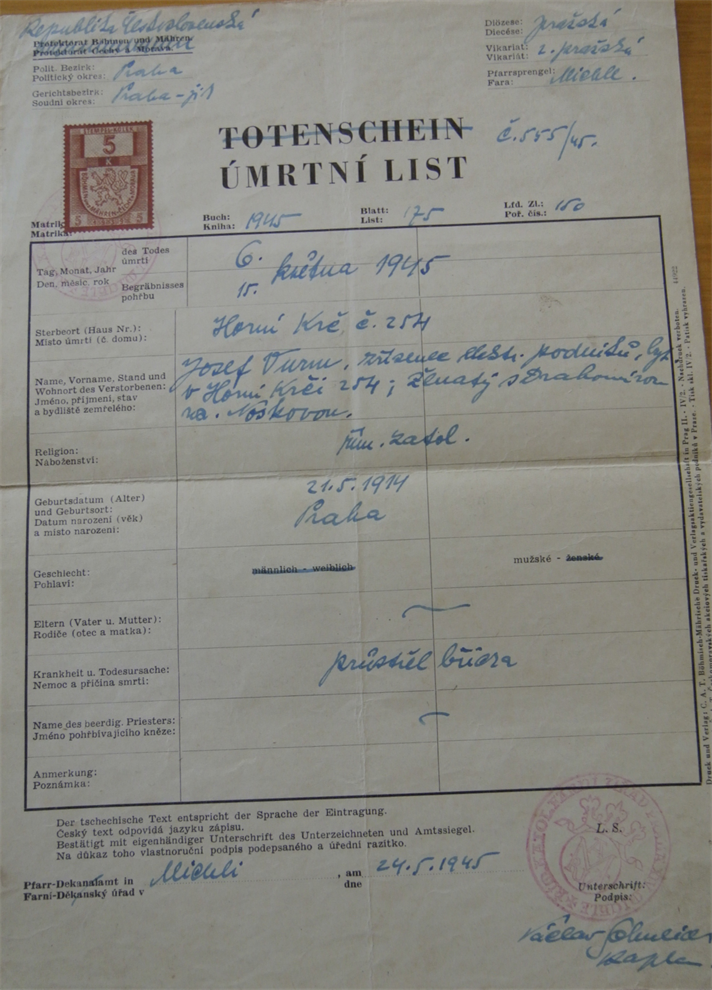 Republika Československá
Protektorat Böhmen und Mähren
Protektorát Čechy a Morava
Polit. Bezirk:
Politický okres: Praha
Gerichtsbezirk:
Soudní okres: Praha-jih
Diözese:
Diecése: pražská
Vikariat:
Vikariát: 2. pražský
Pfarrsprengel:
Fara: Michle.
5
K
5 5
TOTENSCHEIN
č. 555/45.
ÚMRTNÍ LIST
Matrik
Matrika:
Buch:
Kniha: 1945
Blatt:
List: 175
Lfd. Zl.:
Poř. čís.: 150
Tag, Monat, Jahr
Den, měsíc, rok
des Todes
úmrtí
6. května 1945
Begräbnisses
pohřbu
15.
Sterbeort (Haus Nr.):
Místo úmrtí (č. domu):
Horní Krč, č. 254
Name, Vorname, Stand und
Wohnort des Verstorbenen:
Jméno, příjmení, stav
a bydliště zemřelého:
Josef Turm, zřízenec elektr. podniků, byt.
v Horní Krči 254; ženatý s Drahomírou
roz. Noskovou.
Religion:
Náboženství:
řím. katol.
Geburtsdatum (Alter)
und Geburtsort:
Datum narození (věk)
a místo narození:
21.5.1914
Praha
Geschlecht:
Pohlaví:
männlich - weiblich
mužské - ženské
Eltern (Vater u. Mutter):
Rodiče (otec a matka):
Krankheit u. Todesursache:
Nemoc a příčina smrti:
průstřel břicha
Name des beerdig. Priesters:
Jméno pohřbívajícího kněze:
Anmerkung:
Poznámka:
Der tschechische Text entspricht der Sprache der Eintragung.
Český text odpovídá jazyku zápisu.
Bestätigt mit eigenhändiger Unterschrift des Unterzeichneten und Amtssiegel.
Na důkaz toho vlastnoruční podpis podepsaného a úřední razítko.
L. S.
Pfarr-Dekanalamt in
Farní-Děkanský úřad v Michli
, am
dne 24.5.1945
Unterschrift:
Podpis:
Václav
kaplan